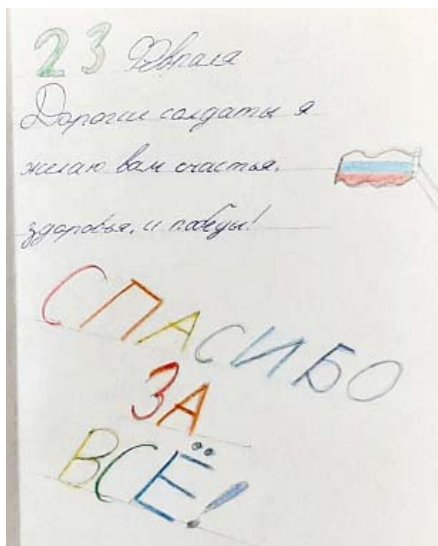 23 Февраля
Дорогие солдаты я
желаю вам счастья,
здоровья, и победы!
СПАСИБО
ЗА
ВСЁ!